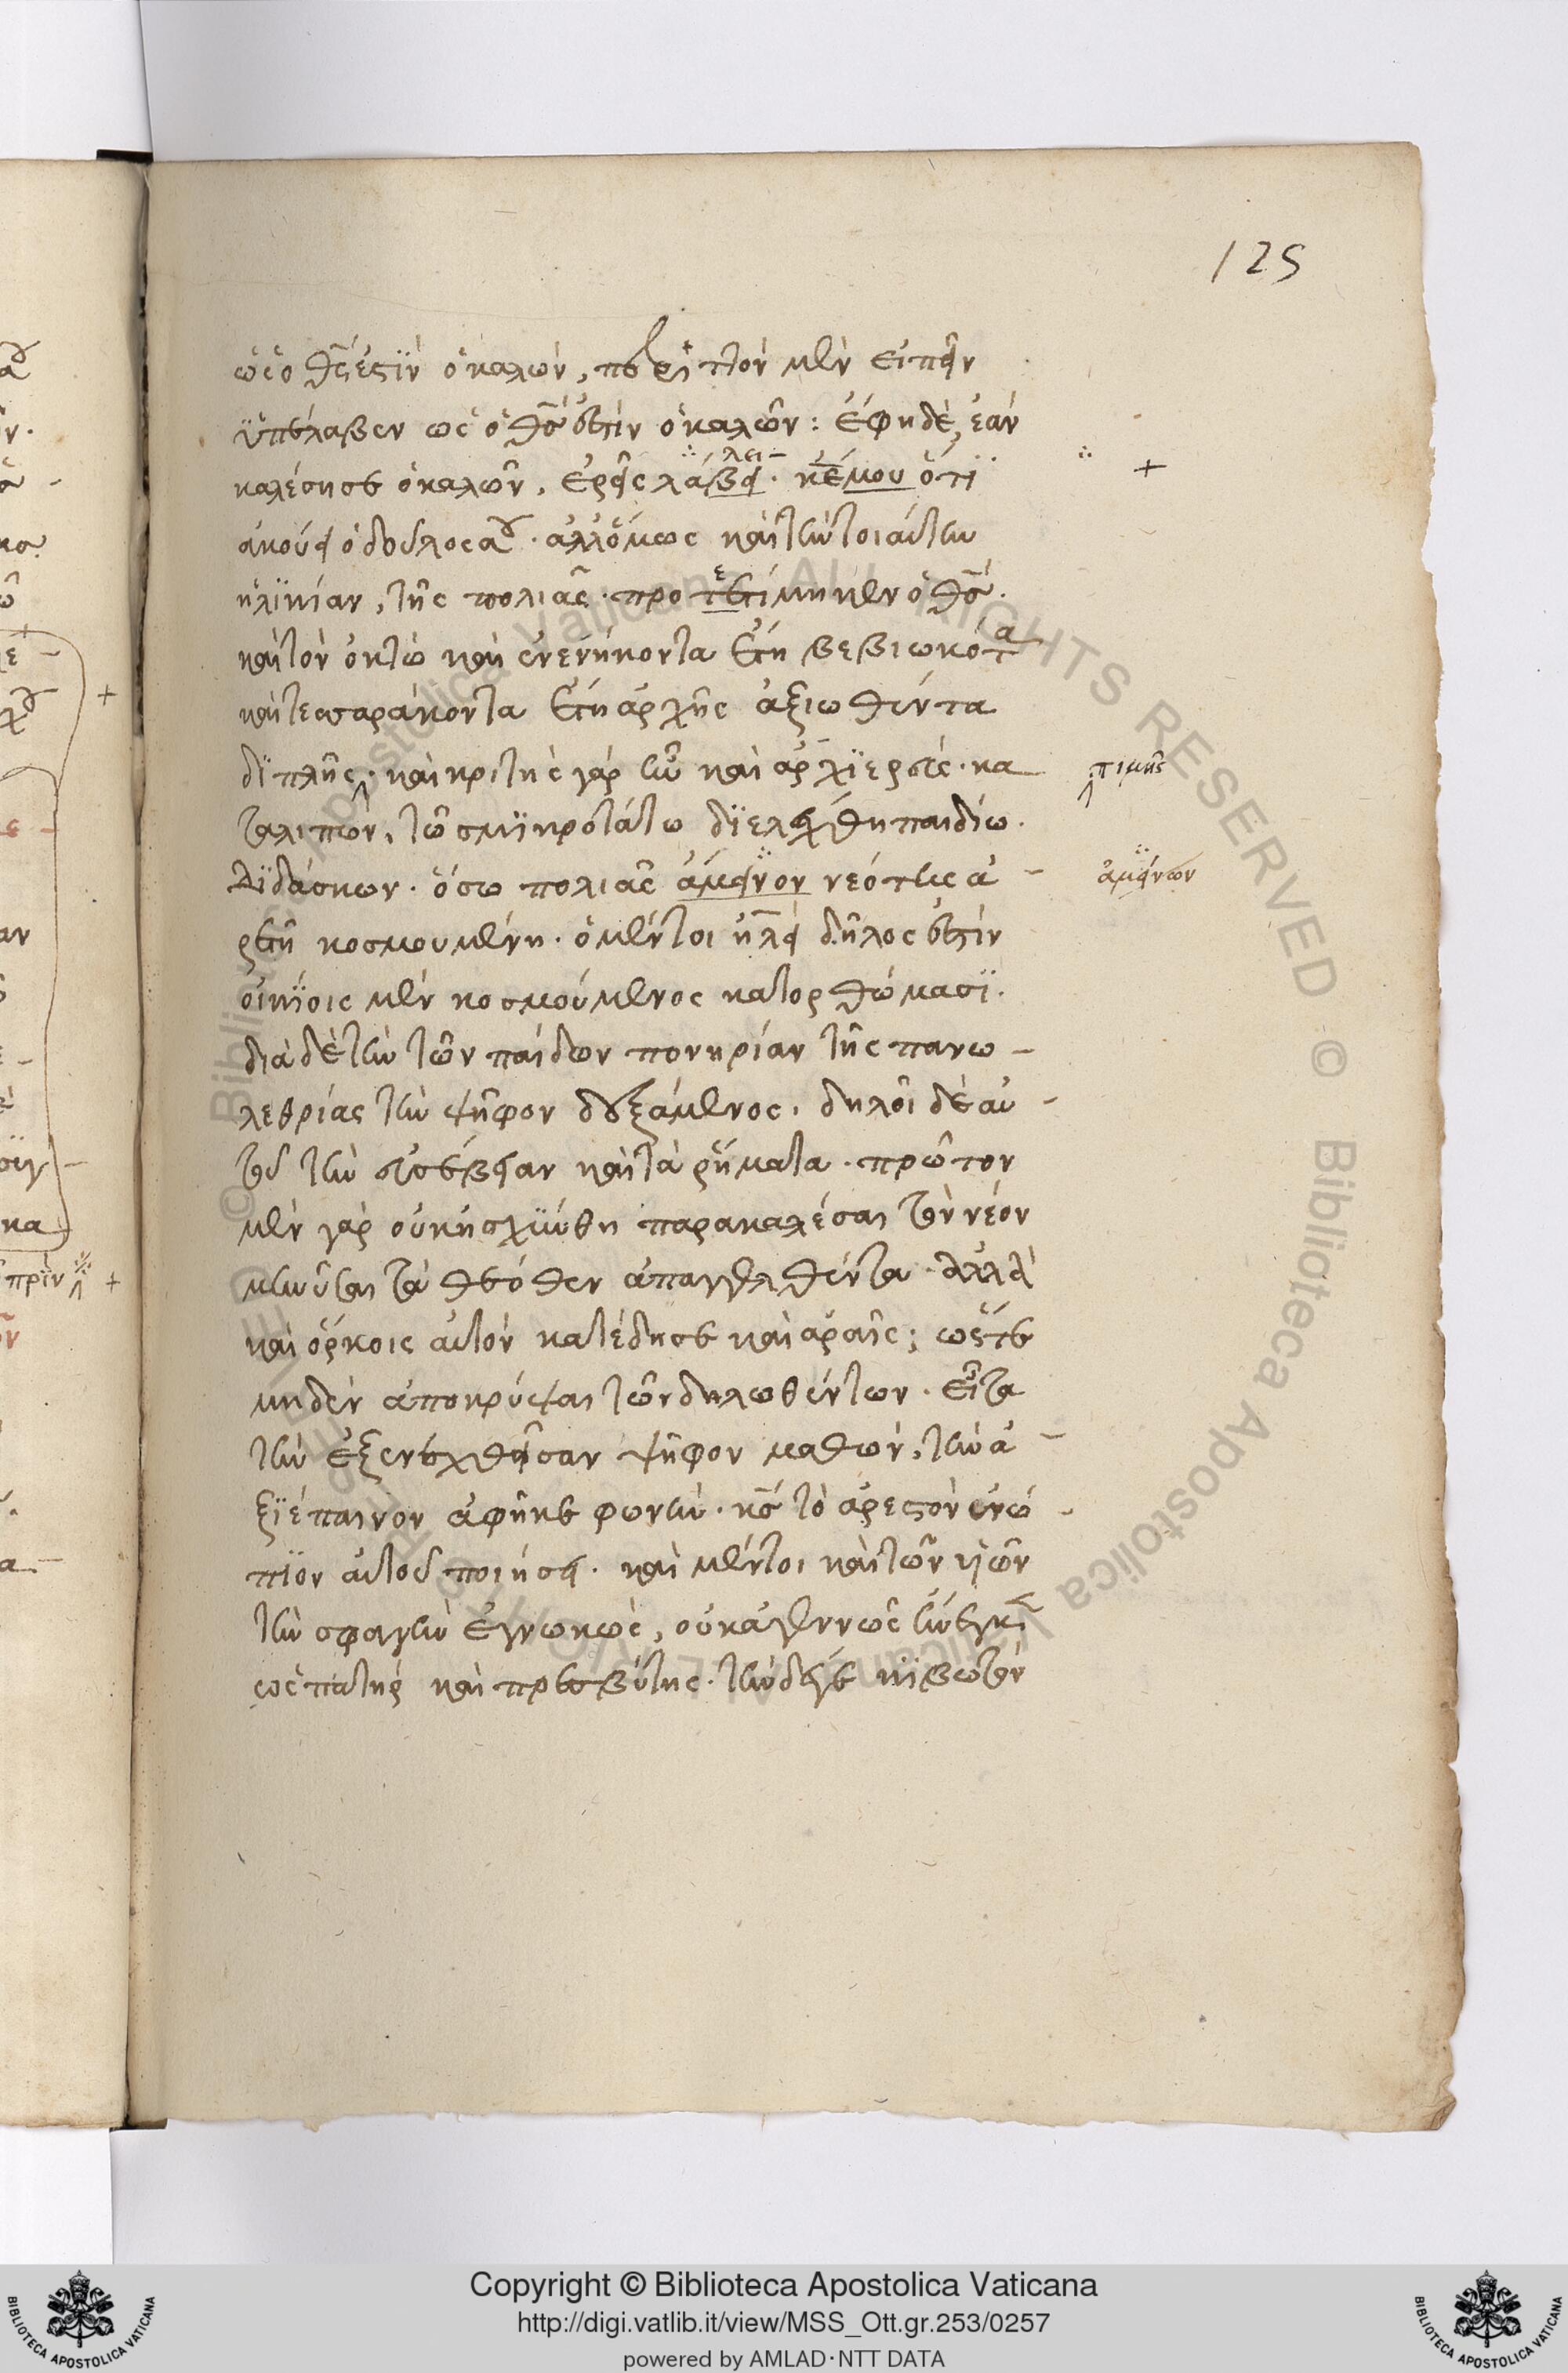 125
ὡς ὁ θς ἐστὶν ὁ καλῶν, περιττὸν μὲν εἰπεῖν
ὑπέλαβεν ὡς ὁ θς ἐστιν ὁ καλῶν: ἔφη δὲ, ἐὰν
καλέση σε ὁ καλῶν, ἐρεῖς λάβει · κε μου ὅτι
λει
ἀκούει ὁ δοῦλος σου · ἀλλ' ὅμως καὶ τὴν τοιαύτην
ἡλικίαν, τῆς πολιᾶς · προτετίμηκεν ὁ θς.
καὶ τὸν ὀκτὼ καὶ ἐνενήκοντα ἔτη βεβιωκότα
καὶ τεσσαράκοντα ἔτη ἀρχῆς ἀξιωθέντα
διπλῆς · καὶ κριτὴς γὰρ ἦν καὶ ἀρχιερεύς · κα
τιμῆς
ταλιπὼν, τῶ σμικροτάτω διελέχθη παιδίω.
διδάσκων · ὅσω πολιᾶς ἄμεινον νεότης ἀ
ἀμείνων
ρετῆ κοσμουμένη · ὁ μέντοι ἠλεὶ δῆλος ἐστὶν
οἰκείοις μὲν κοσμούμενος κατορθώμασι.
διὰ δὲ τὴν τῶν παίδων πονηρίαν τῆς πανω
λεθρίας τὴν ψῆφον δεξάμενος · δηλοῖ δὲ αὐ
τοῦ τὴν εὐσέβειαν καὶ τὰ ῥήματα · πρῶτον
μὲν γὰρ οὐκ ἠσχύνθη παρακαλέσαι τὸν νέον
μηνῦσαι τὰ θεόθεν ἀπαγγελθέντα · ἀλλὰ
καὶ ὅρκοις αὐτὸν κατέδησε καὶ ἀραῖς; ὥστε
μηδὲν ἀποκρύψαι τῶν δηλωθέντων · εἶτα
τὴν ἐξενεχθεῖσαν ψῆφον μαθὼν, τὴν ἀ
ξιέπαινον ἀφῆκε φωνὴν · κς τὸ ἀρεστὸν ἐνώ
πιον αὐτοῦ ποιήσει · καὶ μέντοι καὶ τῶν υἱῶν
τὴν σφαγὴν ἐγνωκὼς, οὐκ ἀγεννῶς ἤνεγκεν
ὡς πατὴρ καὶ πρεσβύτης · τὴν δέ γε κιβωτὸν